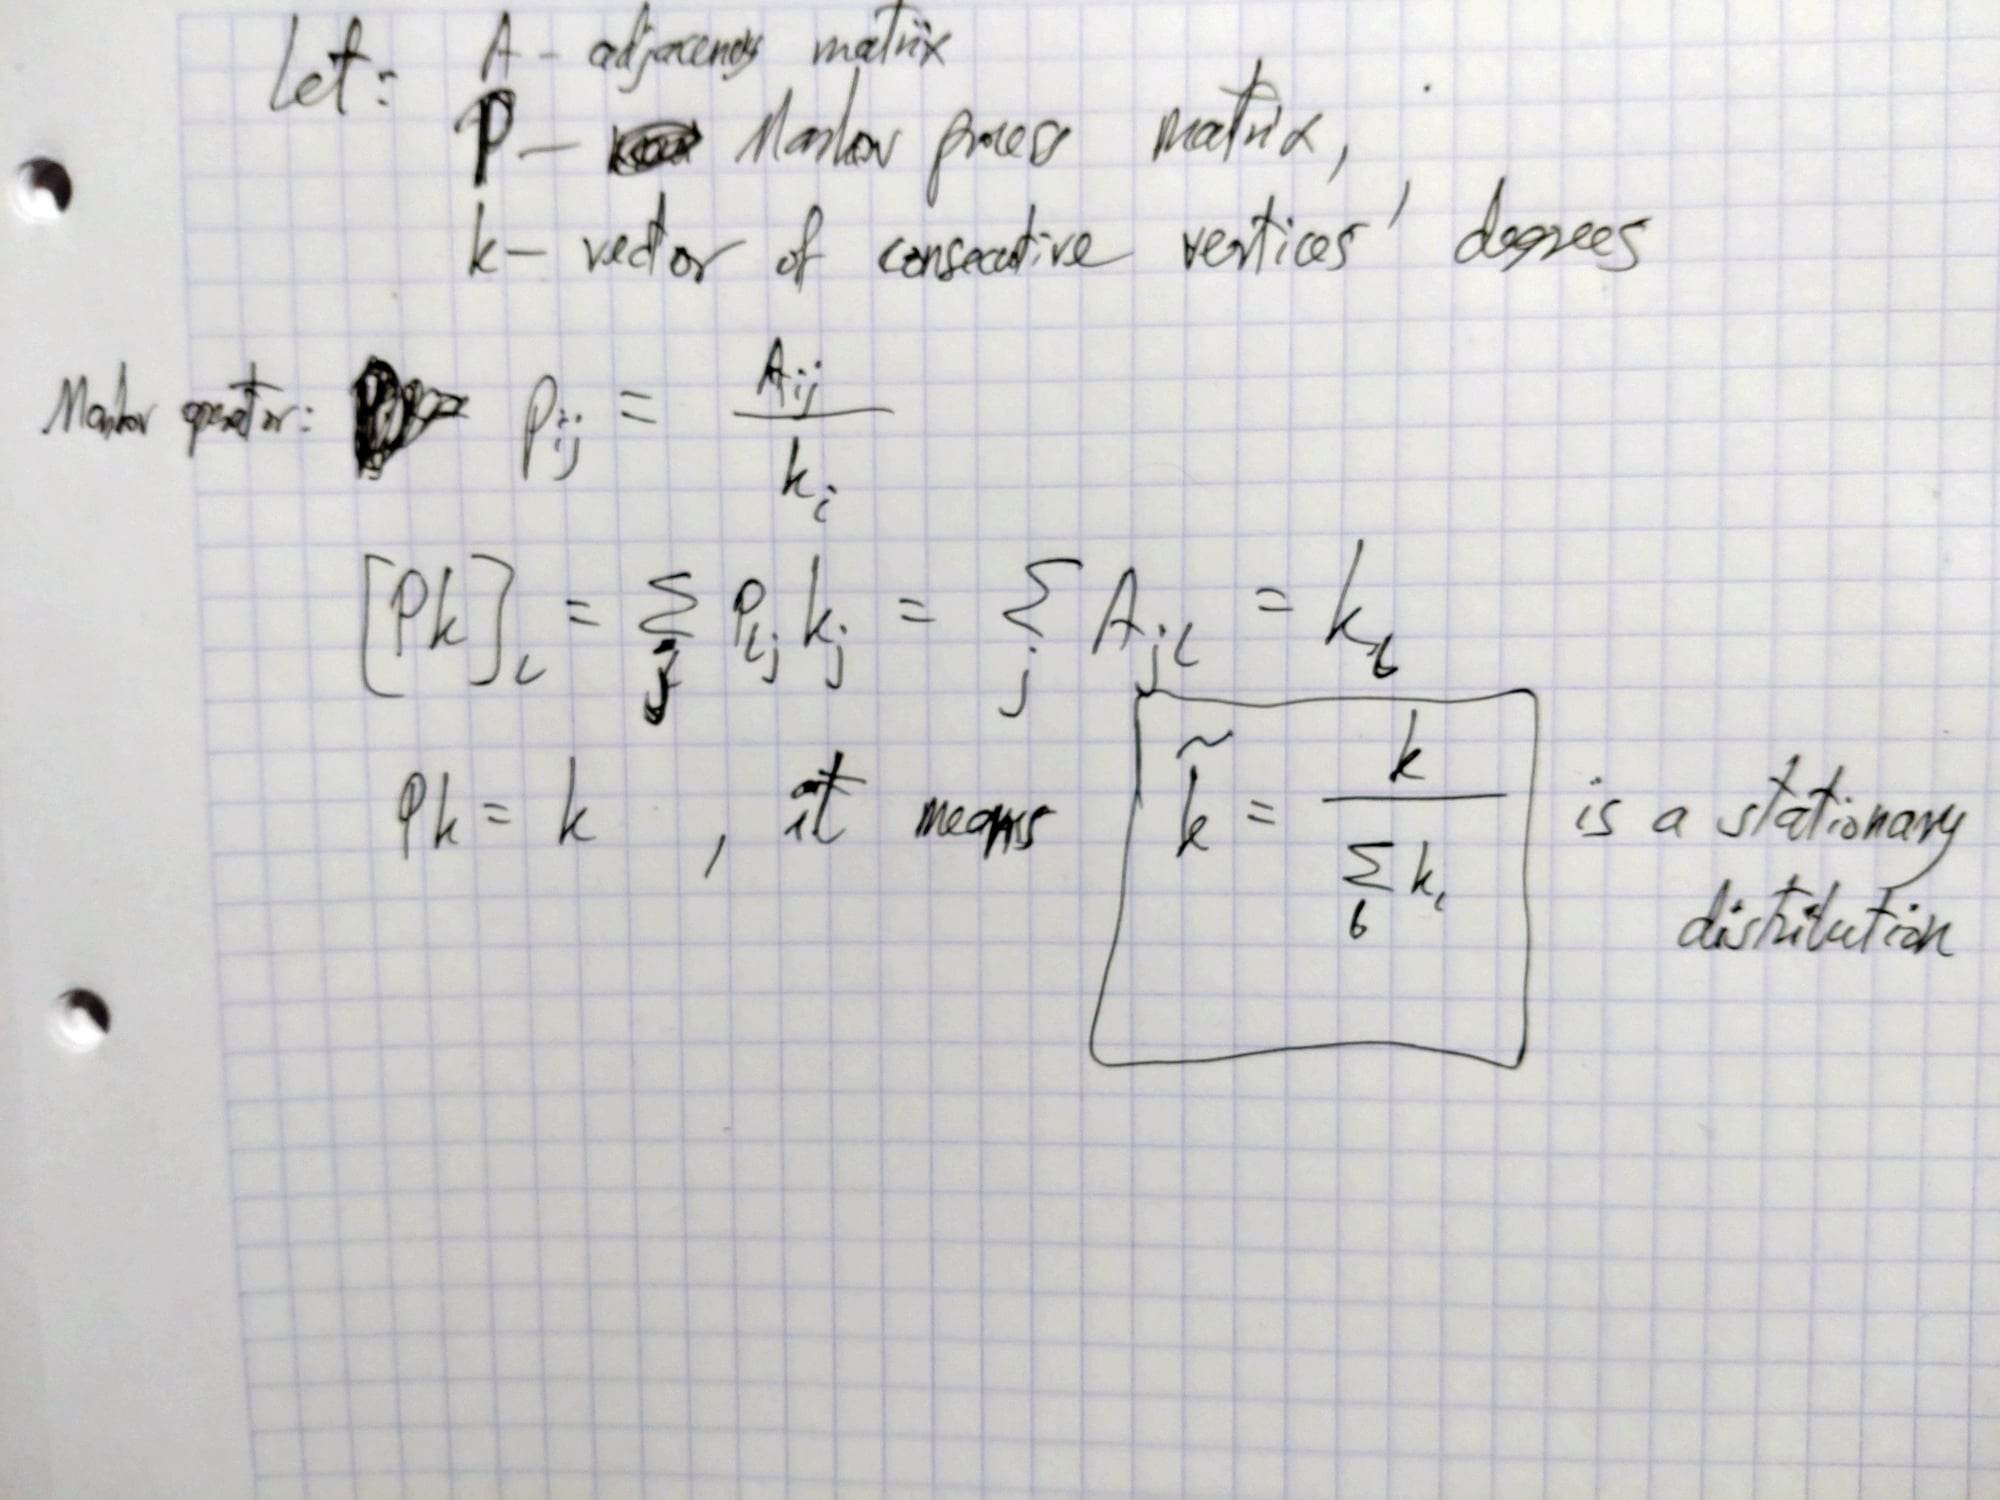 Let: A - adjacency matrix
P - Markov process matrix,
k - vector of consecutive vertices' degrees
Markov operator: p_ij = A_ij / k_i
[Pk]_i = ∑_j P_ij k_j = ∑_j A_ji = k_i
Pk = k , it means k̃ = k / ∑_i k_i is a stationary
distribution